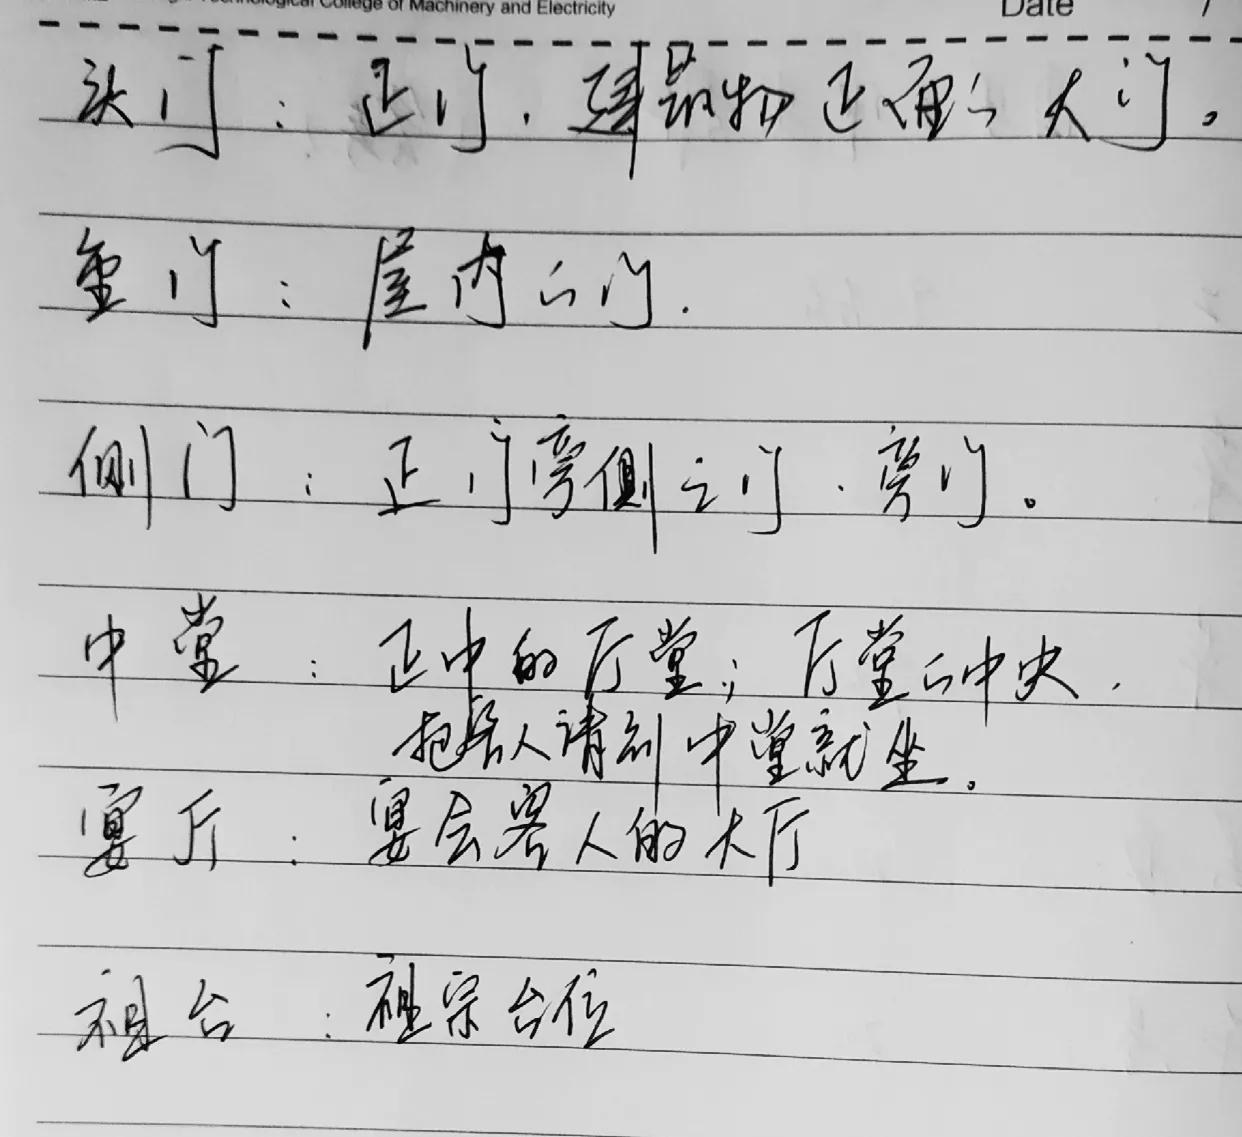 Technological College of Machinery and Electricity
Date /
头门：正门，建筑物正面的大门。
室门：屋内的门.
侧门：正门旁侧之门，旁门。
中堂：正中的厅堂；厅堂的中央.
把客人请到中堂就坐。
宴厅：宴会客人的大厅
祖台：祖宗台位